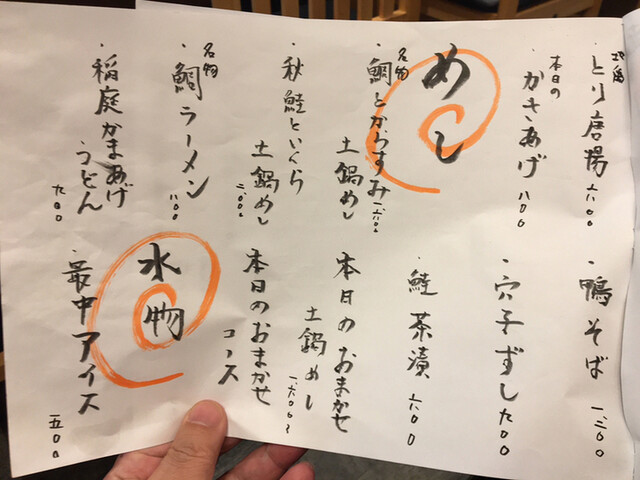 地鶏
とり唐揚 六〇〇
本日の
かきあげ 八〇〇
めし
名物
・鯛とからすみ
土鍋めし 一、六〇〇
・秋鮭といくら
土鍋めし 二、〇〇〇
名物
・鯛ラーメン 八〇〇
・稲庭かまあげ
うどん 九〇〇
・鴨そば 一、二〇〇
・穴子ずし 九〇〇
・鮭茶漬 六〇〇
本日のおまかせ
土鍋めし 一、六〇〇〜
本日のおまかせ
コース
水物
・最中アイス 五〇〇